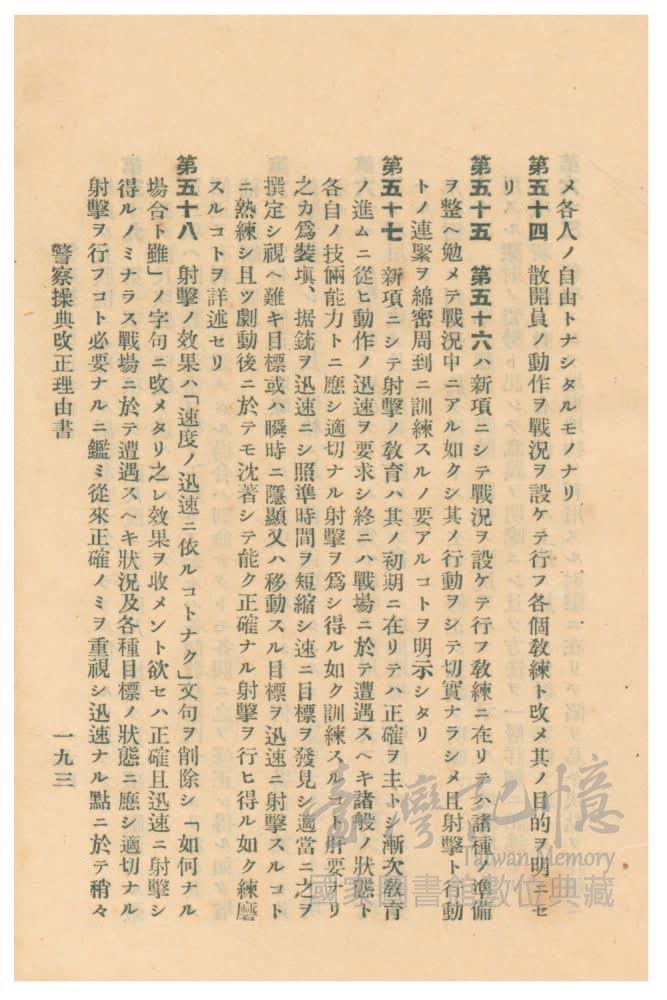 メ各人ノ自由トナシタルモノナリ
第五十四　散開員ノ動作ヲ戰況ヲ設ケテ行フ各個敎練ト改メ其ノ目的ヲ明ニセ
リ
第五十五　第五十六ハ新項ニシテ戰況ヲ設ケテ行フ敎練ニ在リテハ諸種ノ準備
ヲ整ヘ勉メテ戰況中ニアル如クシ其ノ行動ヲシテ切實ナラシメ且射擊ト行動
トノ連繫ヲ綿密周到ニ訓練スルノ要アルコトヲ明示シタリ
第五十七　新項ニシテ射擊ノ敎育ハ其ノ初期ニ在リテハ正確ヲ主トシ漸次敎育
ノ進ムニ從ヒ動作ノ迅速ヲ要求シ終ニハ戰場ニ於テ遭遇スヘキ諸般ノ狀態ト
各自ノ技倆能力トニ應シ適切ナル射擊ヲ爲シ得ル如ク訓練スルコト肝要ナリ
之カ爲裝塡、据銃ヲ迅速ニシ照準時間ヲ短縮シ速ニ目標ヲ發見シ適當ニ之ヲ
撰定シ視ヘ難キ目標或ハ瞬時ニ隱顯又ハ移動スル目標ヲ迅速ニ射擊スルコト
ニ熟練シ且ツ劇動後ニ於テモ沈著シテ能ク正確ナル射擊ヲ行ヒ得ル如ク練磨
スルコトヲ詳述セリ
第五十八　射擊ノ效果ハ「速度ノ迅速ニ依ルコトナク」文句ヲ削除シ「如何ナル
場合ト雖」ノ字句ニ改メタリ之レ效果ヲ收メント欲セハ正確且迅速ニ射擊シ
得ルノミナラス戰場ニ於テ遭遇スヘキ狀況及各種目標ノ狀態ニ應シ適切ナル
射擊ヲ行フコト必要ナルニ鑑ミ從來正確ノミヲ重視シ迅速ナル點ニ於テ稍々
警察操典改正理由書
一九三
臺灣記憶
Taiwan Memory
國家圖書館數位典藏